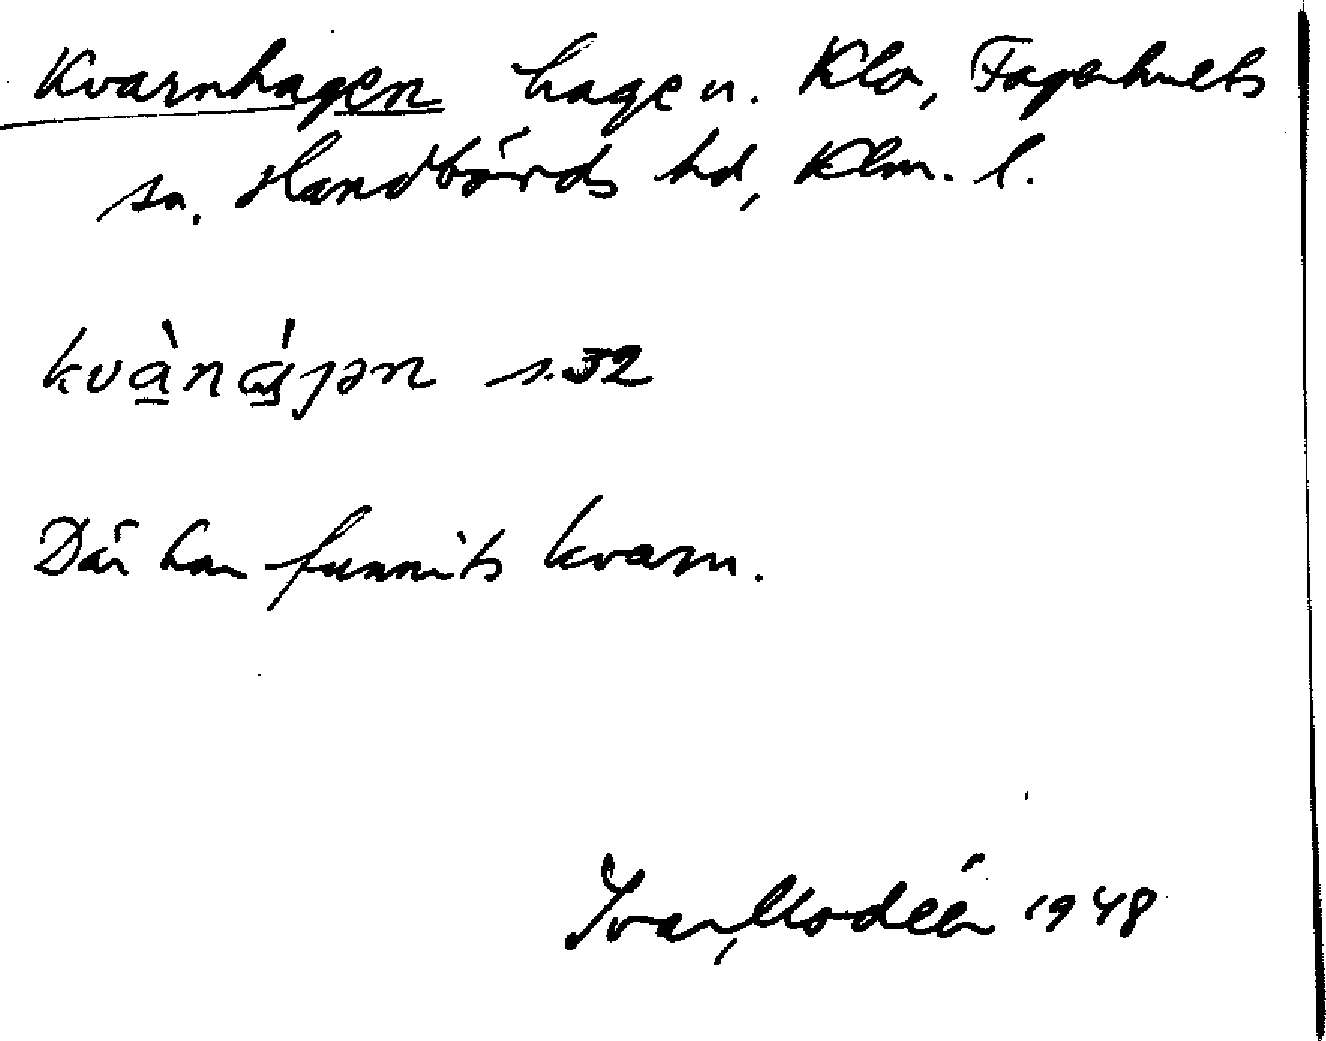 Kvarnhagen hage u. Klo, Fagerhults
sn. Handbörds hd, Klm. l.
kvànájən s. 32
Där har funnits kvarn.
Ivar Modéer 1948